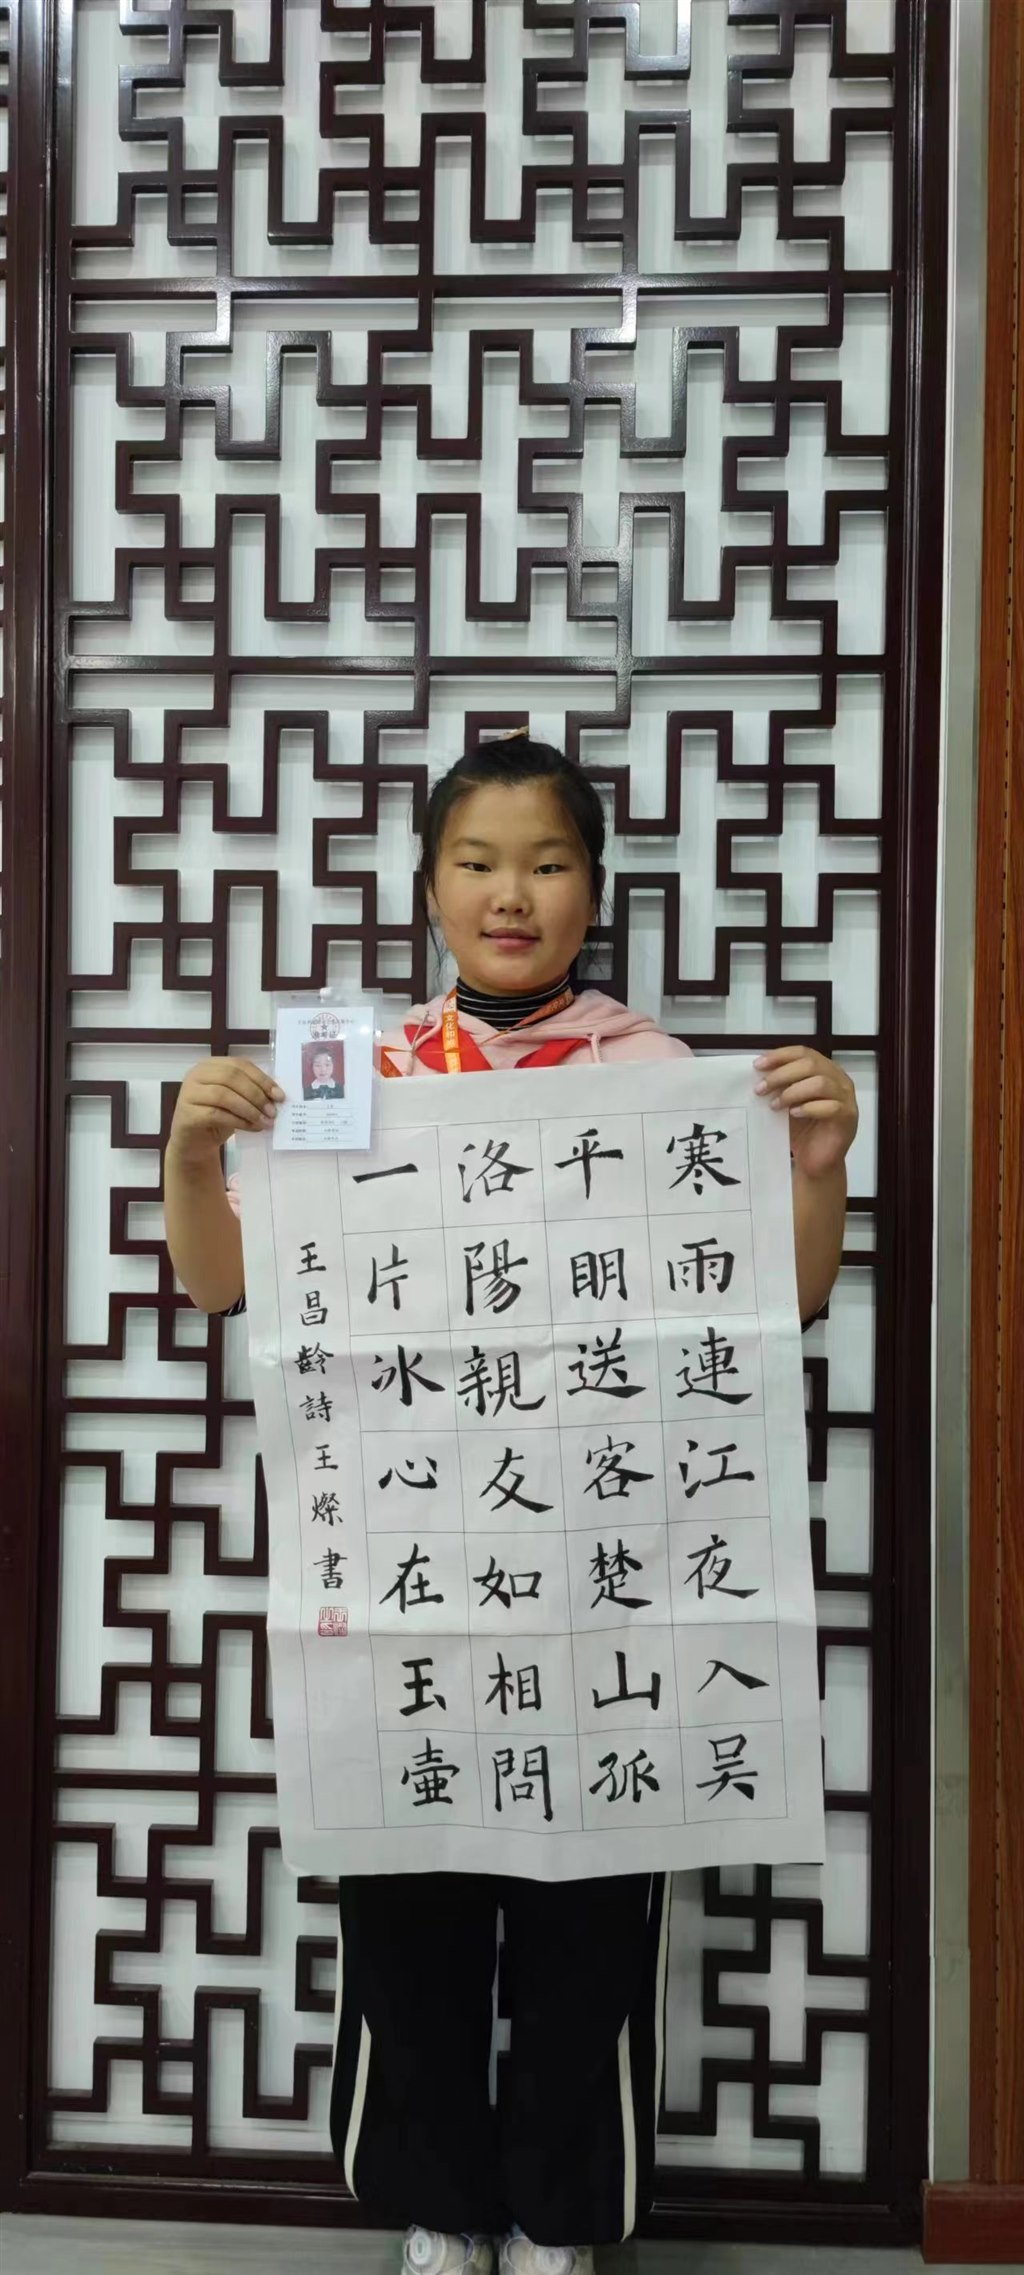 寒雨連江夜入吴
平明送客楚山孤
洛陽親友如相問
一片冰心在玉壺
王昌齡詩王燦書
准考证